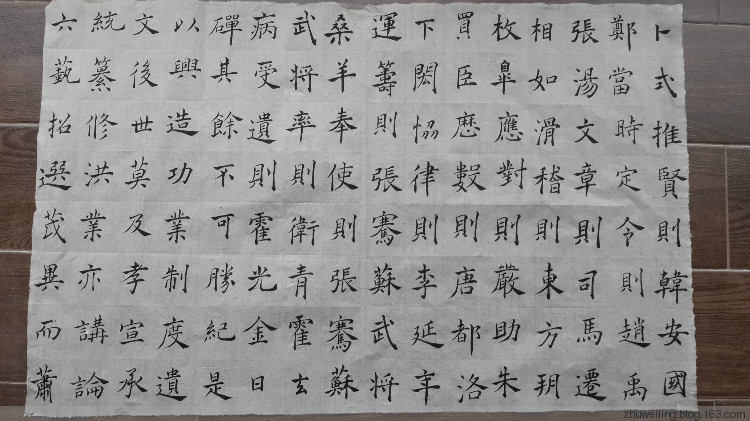 卜式推賢則韓安國
鄭當時定令則趙禹
張湯文章則司馬遷
相如滑稽則東方朔
枚皋應對則嚴助朱
買臣厯數則唐都洛
下閎恊律則李延年
運籌則張騫蘇武將
桑羊奉使則張騫蘇
武将率則衛青霍去
病受遺則霍光金日
磾其餘不可勝紀是
以興造功業制度遺
文後世莫及孝宣承
統纂修洪業亦講論
六藝招選茂異而蕭
zhuweiling.blog.163.com